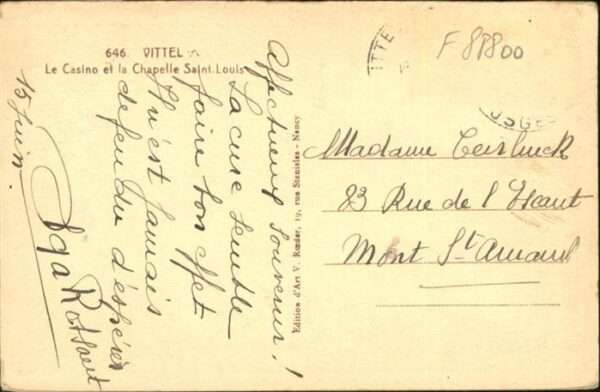 646 VITTEL
Le Casino et la Chapelle Saint-Louis
F 81800
ITTE
OSGE
Affectueux souvenir!
La cure semble
faire bon effet
Il n'est jamais
défendu d'espérer
15 juin
Edition d'Art V. Rœder, 19, rue Stanislas - Nancy
Madame
83 Rue de l'Escaut
Mont St. Amand